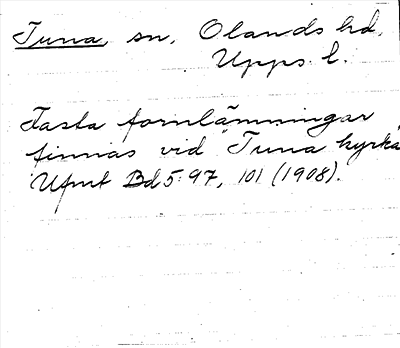 Tuna, sn, Olands hd,
Upps. l.
Fasta fornlämningar
finnas vid Tuna kyrka
Ufmt Bd 5: 97, 101 (1908).